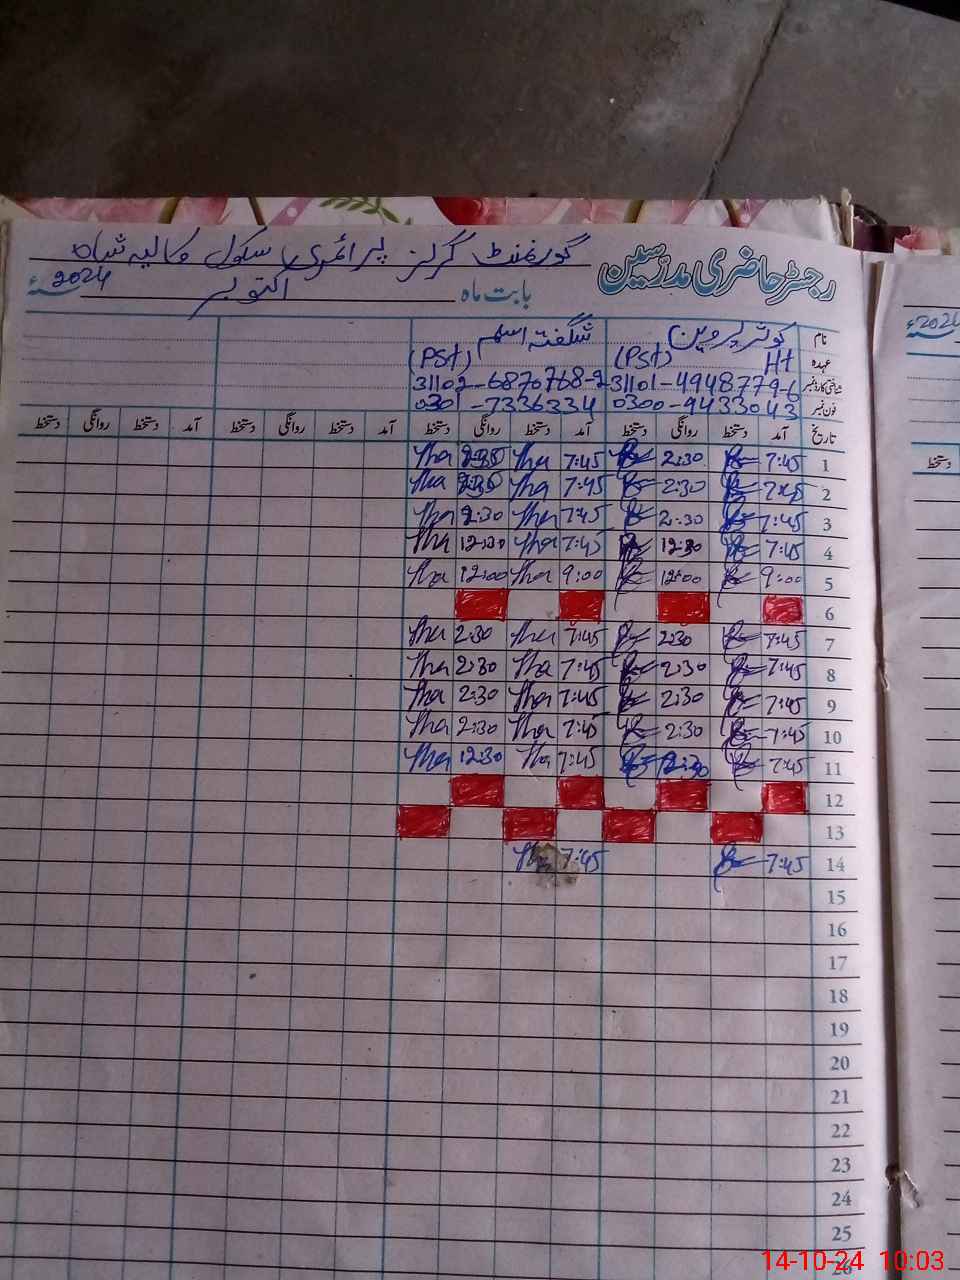 رجسٹر حاضری مدرسین گورنمنٹ گرلز پرائمری سکول
بابت ماہ اکتوبر 2024ء
نام کوثر پروین شگفتہ اسلم
عہدہ Ht (PSt) (PSt)
شناختی کارڈ نمبر 31101-4948779-6 31102-6870768-2
فون نمبر 0300-9433043 0301-7336334
تاریخ آمد دستخط روانگی دستخط آمد دستخط روانگی دستخط آمد دستخط روانگی دستخط آمد دستخط روانگی دستخط
1 7:45 2:30 7:45
2 7:45 2:30 7:45
3 7:45 2:30 7:45 2:30
4 7:45 12:30 7:45 12:30
5 9:00 12:00 9:00 12:00
6
7 7:45 2:30 7:45 2:30
8 7:45 2:30 7:45 2:30
9 7:45 2:30 7:45 2:30
10 7:45 2:30 7:45 2:30
11 7:45 12:30 7:45 12:30
12
13
14 7:45 7:45
15
16
17
18
19
20
21
22
23
24
25
26
2024ء
دستخط
14-10-24 10:03